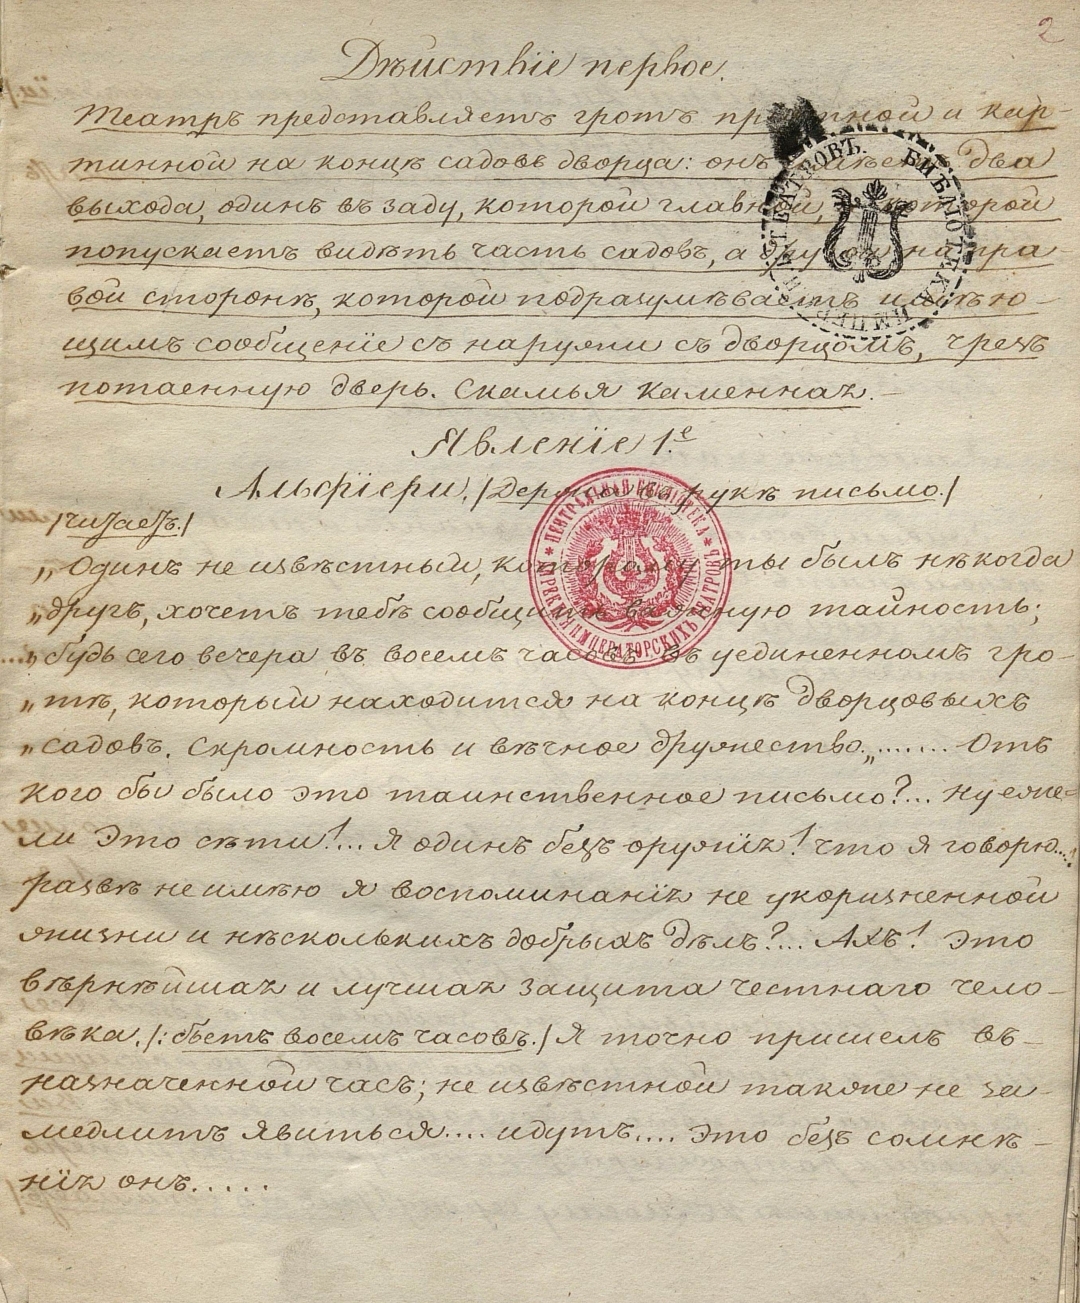 2
Дѣйствіе первое.
Театръ представляетъ гротъ пріятной и кар-
тинной на концѣ садовъ дворца: онъ имѣетъ два
выхода, одинъ въ заду, которой главной, и которой
попускаетъ видѣть часть садовъ, а другой на пра
вой сторонѣ, которой подразумѣваетъ имѣю-
щимъ сообщеніе съ наружи съ дворцомъ, чрезъ
потаенную дверь. Скамья каменная.-
БИБЛІОТЕКА ИМПЕР. ТЕАТРОВЪ.
Явленіе 1.е
Альфіери, /держитъ въ рукѣ письмо./
ЦЕНТРАЛЬНАЯ БИБЛІОТЕКА ИМПЕРАТОРСКИХЪ ТЕАТРОВЪ
/читаетъ./
„Одинъ не извѣстный, которому ты былъ нѣкогда
„другъ, хочетъ тебѣ сообщить важную тайность;
„будь сего вечера въ восемъ часовъ въ уединенномъ гро-
„тѣ, который находится на концѣ дворцовыхъ
„садовъ. Скромность и вѣчное дружество„....... Отъ
кого бы было это таинственное письмо?... Ну еже=
ли это сѣти!... Я одинъ безъ оружія! что я говорю...
развѣ не имѣю я воспоминанія не укоризненной
жизни и нѣсколькихъ добрыхъ дѣлъ?... Ахъ! это
вѣрнѣйшая и лучшая защита честнаго чело-
вѣка. /:бьетъ восемъ часовъ./ Я точно пришелъ въ-
назначенной часъ; не извѣстной также не за-
медлитъ явиться.... идутъ.... это безъ сомнѣ-
нія онъ.....